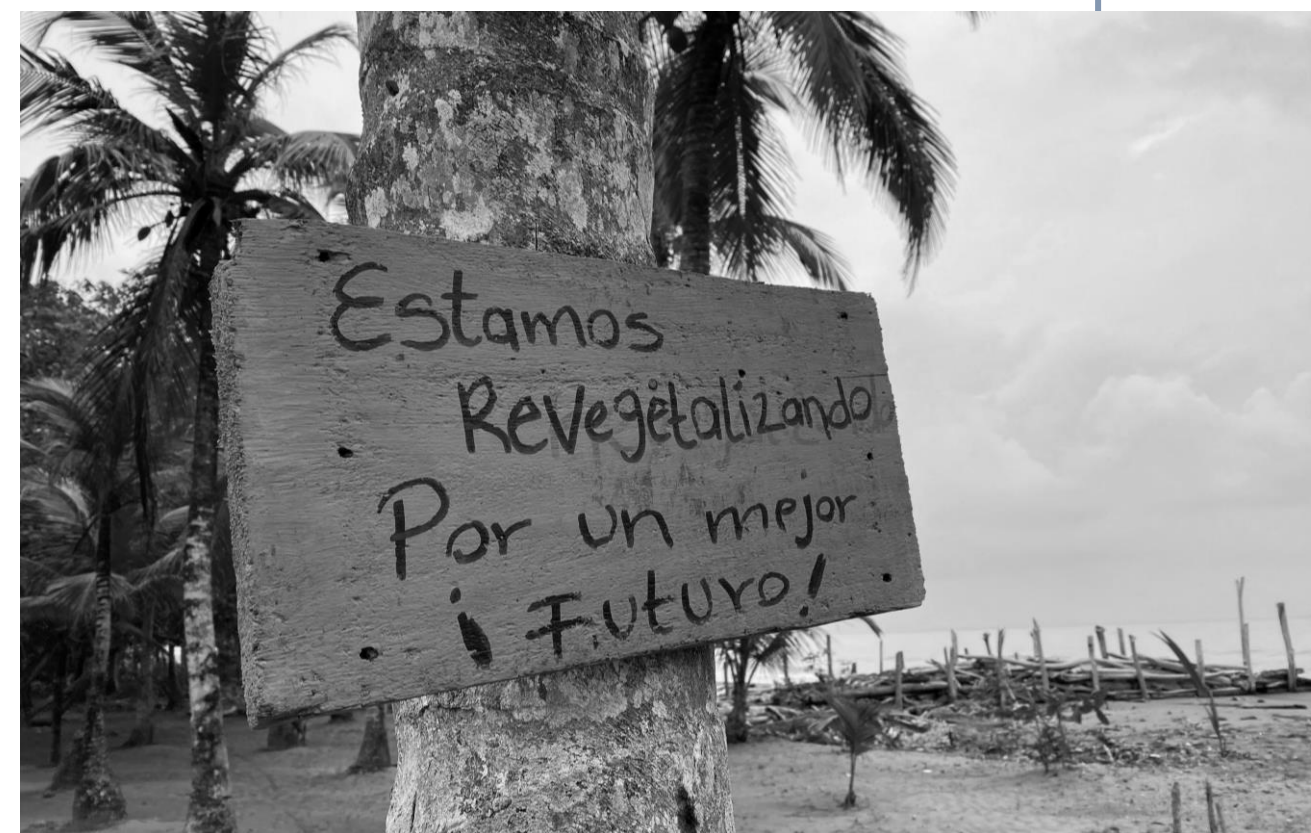 Estamos
Revegetalizando
Por un mejor
¡ Futuro!